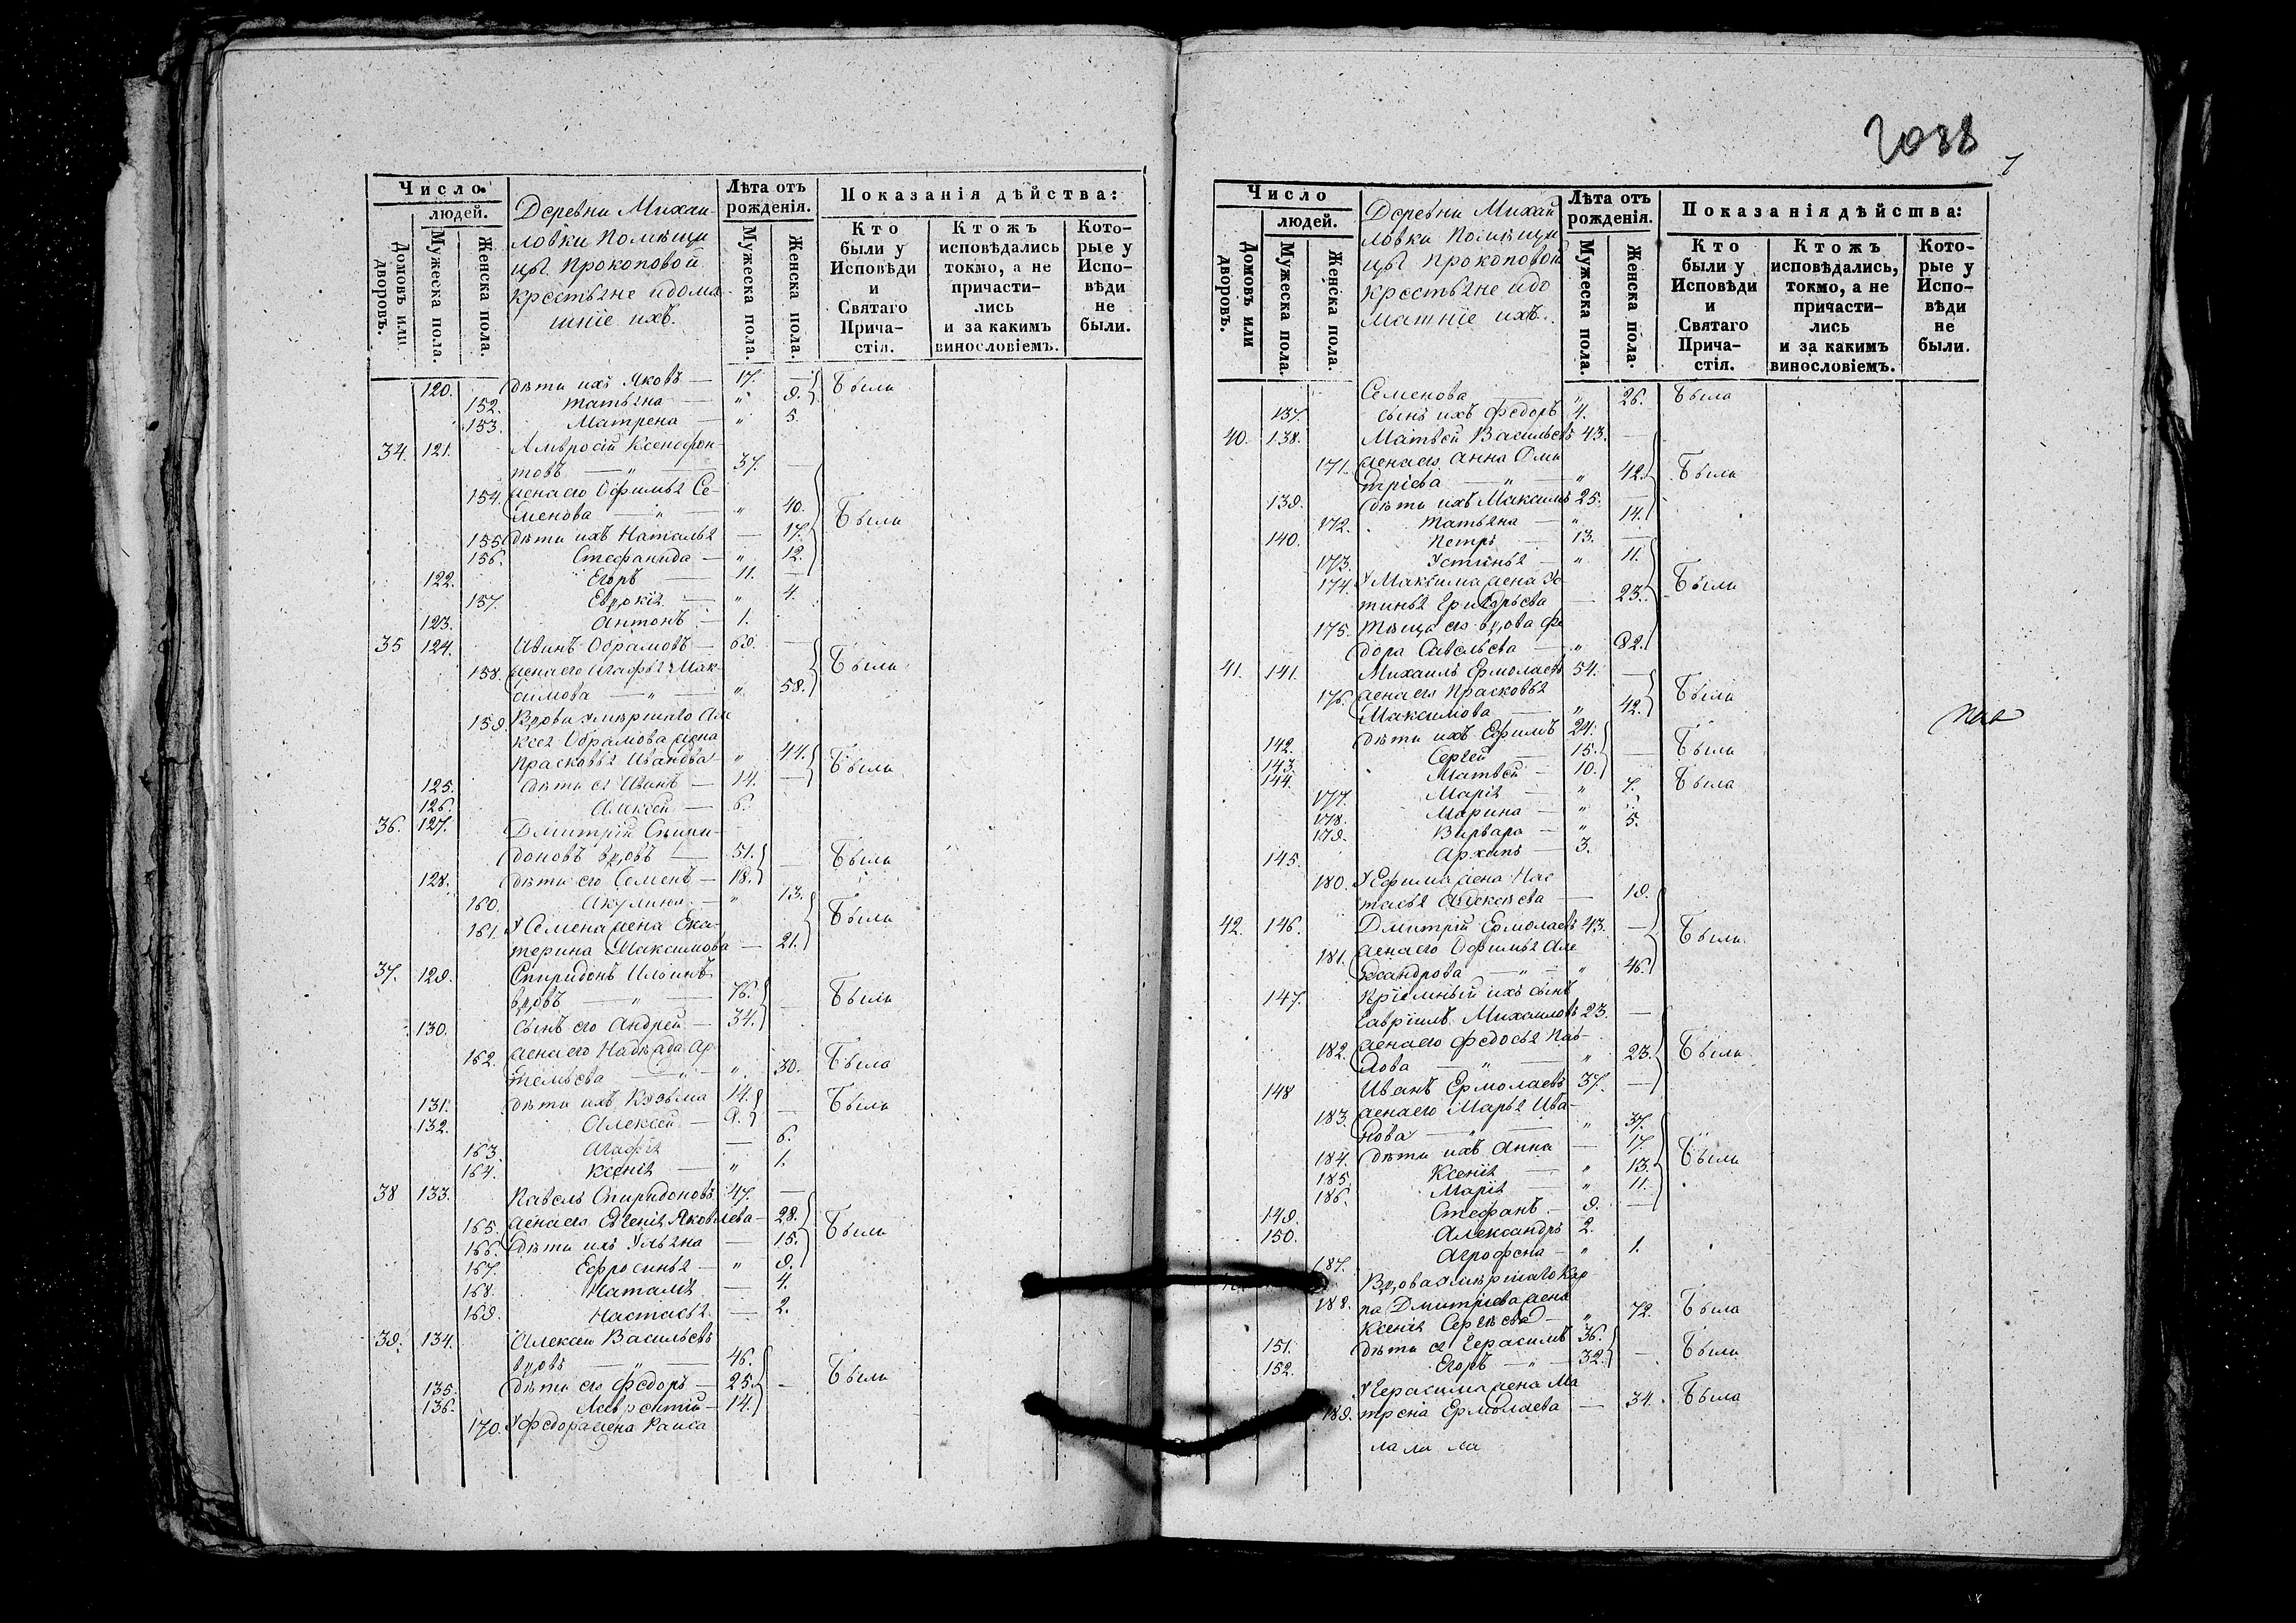 2038
7
Число
людей.
Домовъ или дворовъ.
Мужеска пола.
Женска пола.
Деревни Михаи-
ловки Помѣщи
цы Прокоповой
крестьяне и дома
шніе ихъ.
Лѣта отъ
рожденія.
Мужеска пола.
Женска пола.
Показанія дѣйства:
Кто
были у
Исповѣди
и
Святаго
Прича-
стія.
Ктожъ
исповѣдались
токмо, а не
причасти-
лись
и за какимъ
винословіемъ.
Кото-
рые у
Испо-
вѣди
не
были.
120. дѣти ихъ Яковъ — 17. —
152. Татьяна — " 9. Были
153. Матрена — " 5.
34. 121. Амвросій Ксенофон-
товъ — " — 37. —
154. жена его Офимья Се-
менова — " — " 40. Были
155. дѣти ихъ Наталья — 17.
156. Стефанида — " 12.
122. Егоръ — 11. —
157. Евдокія — " 4.
123. Антонъ — 1.
35 124. Иванъ Обрамовъ — 69. —
158. жена его Агафья Мак-
симова — " — " 58. Были
159. Вдова умершаго Але
ксея Обрамова жена
Прасковья Иванова — " 44. Были
125. дѣти ея Иванъ — 14. —
126. Алексей — 6.
36. 127. Дмитрій Спири-
доновъ вдовъ — 51. — Были
128. дѣти его Семенъ — 18.
160. Акулина — " 13.
161. У Семена жена Ека- Были
терина Максимова — 21.
37. 129. Спиридонъ Ильинъ
вдовъ — " — 76. — Были
130. сынъ его Андрей — 34.
162. жена его Надежда Ар
темьева — " — " 30. Была
131. дѣти ихъ Козьма 14. — Были
132. Алексей — 9.
163. Агафія — 6.
164. Ксенія — " 1.
38 133. Павелъ Спиридоновъ 47. —
165. жена его Евгенія Яковлева — 28.
166. дѣти ихъ Ульяна — 15. Были
167. Ефросинья — " 9.
168. Наталія — 4.
169. Настасья — 2.
39. 134. Алексей Васильевъ
вдовъ — " — 46.
135. дѣти его Федоръ — 25. - Были
136. Лаврентій — 14.
170. У Федора жена Раиса
Число
людей.
Домовъ или дворовъ.
Мужеска пола.
Женска пола.
Деревни Михай
ловки Помѣщи
цы Прокоповой
крестьяне и до
машніе ихъ.
Лѣта отъ
рожденія.
Мужеска пола.
Женска пола.
Показанія дѣйства:
Кто
были у
Исповѣди
и
Святаго
Прича-
стія.
Ктожъ
исповѣдались,
токмо, а не
причасти-
лись
и за какимъ
винословіемъ.
Кото-
рые у
Испо-
вѣди
не
были.
Семенова — " 26. Была
137. сынъ ихъ Федоръ 4.
40. 138. Матвей Васильевъ 43. —
171. жена его Анна Дми
тріева — " — " 42. Были
139. дѣти ихъ Максимъ 25. —
172. Татьяна — " 14.
140. Петръ — 13. —
173. Устинья — " 11.
174. У Максима жена Ус- Были
тинья Григорьева — 23.
175. Тѣща его вдова Фе
дора Савельева — " 82.
41. 141. Михаилъ Ермолаевъ 54. —
176. жена его Прасковья Были
Максимова — " 42.
142. дѣти ихъ Ефимъ 24.
143. Сергей — 15. — Были
144. Матвей — 10.
177. Марія — " 7. Была
178. Марина — "
179. Варвара — " 5.
145. Архипъ — 3.
180. У Ефима жена Нас
тасья Алексѣева — 19.
42. 146. Дмитрій Ермолаевъ 43. —
181. жена его Офимья Але Были
ксандрова — " — " 46.
147. Пріемный ихъ сынъ
Гавріилъ Михаиловъ 23. —
182. жена его Федосья Пав-
лова — " — " 23. Были
148 Иванъ Ермолаевъ 37. —
183. жена его Марья Ива-
нова — " — " 37.
184. дѣти ихъ Анна — 17. Были
185. Ксенія — " 13.
186. Марія — " 11.
149. Стефанъ — 9. —
150. Александръ 2.
187. Агрофена — " 1.
Вдова умершаго Кар
188. па Дмитріева жена
Ксенія Сергѣева — " 72. Была
151. дѣти ея Герасимъ 36. — Были
152. Егоръ — " — 32.
У Герасима жена Ма
189. трена Ермолаева — 34. Была